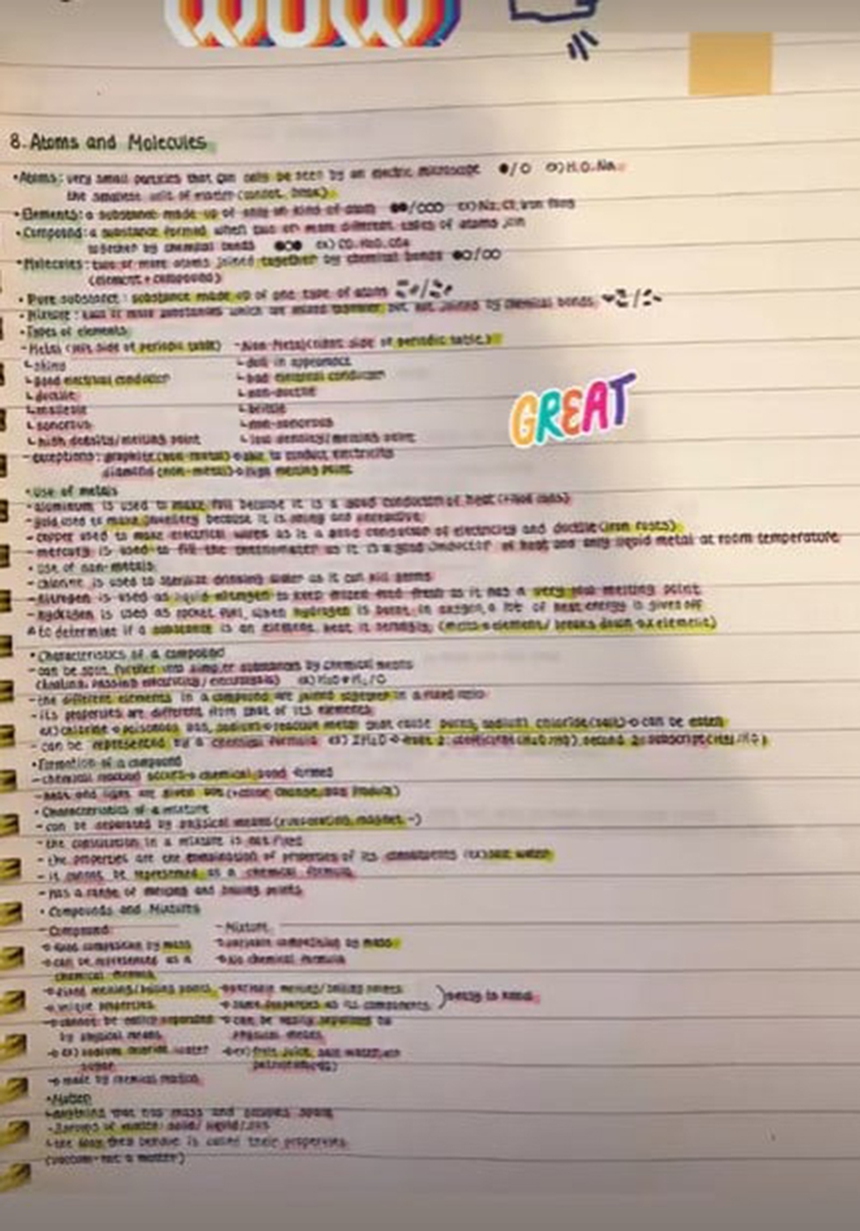 WOW
8. Atoms and Molecules
•Atoms: very small particles that can only be seen by an electric microscope ●/○ ex) H, O, Na
the smallest unit of matter (cannot break)
•Elements: a substance made up of only one kind of atom ●●/○○○ ex) Na, Cl, iron filing
•Compound: a substance formed when two or more different types of atoms join
together by chemical bonds ●○● ex)
•Molecules: two or more atoms joined together by chemical bonds ●○/○○
(element + compound)
•Pure substance: substance made up of one type of atom
•Mixture: two or more substances which are mixed together but not joined by chemical bonds
•Types of elements
-Metal (left side of periodic table) -Non Metal (right side of periodic table)
↳shiny ↳dull in appearance
↳good electrical conductor ↳bad electrical conductor
↳ductile ↳non-ductile
↳malleable ↳brittle
↳sonorous ↳non-sonorous
↳high density/melting point ↳low density/melting point
-exceptions: graphite (non-metal)→able to conduct electricity
diamond (non-metal)→high melting point
GREAT
•Use of metals
-aluminum is used to make foil because it is a good conductor of heat
-gold used to make jewellery because it is shiny and unreactive
-copper used to make electrical wires as it a good conductor of electricity and ductile (iron rusts)
-mercury is used to fill the thermometer as it is a good conductor of heat and only liquid metal at room temperature
•Use of non-metals
-chlorine is used to sterilize drinking water as it can kill germs
-nitrogen is used as liquid nitrogen to keep frozen food fresh as it has a very low melting point
-hydrogen is used as rocket fuel, when hydrogen is burnt in oxygen, a lot of heat energy is given off
to determine if a substance is an element, heat it strongly (melts→element/ breaks down→x element)
•Characteristics of a compound
-can be split further into simpler substances by chemical means
(heating, passing electricity/ electrolysis)
-the different elements in a compound are joined together in a fixed ratio
-its properties are different from that of its elements
ex) chlorine→poisonous gas, sodium→reactive metal that cause burns, sodium chloride (salt)→can be eaten
-can be represented by a chemical formula ex) 2H₂O→
•Formation of a compound
-chemical reaction occurs→chemical bond formed
-heat and light are given out (+color change, gas product)
•Characteristics of a mixture
-can be separated by physical means (evaporation, magnet~)
-the constitution in a mixture is not fixed
-the properties are the combination of properties of its constituents (ex) salt water
-it cannot be represented as a chemical formula
-has a range of melting and boiling points
•Compounds and Mixtures
-Compound -Mixture
→fixed composition by mass →variable composition by mass
→can be represented as a →No chemical formula
chemical formula
→fixed melting/boiling points →variable melting/boiling points
→unique properties →same properties as its components
→cannot be easily separated →can be easily separated by
by physical means physical means
→ex) sodium chloride, water →ex) fruit juice, salt water, air
sugar
→made by chemical reaction
•Matter
↳anything that has mass and occupies space
-3 groups of matter: solid/ liquid/ gas
↳the way they behave is called their properties
(vacuum- not a matter)